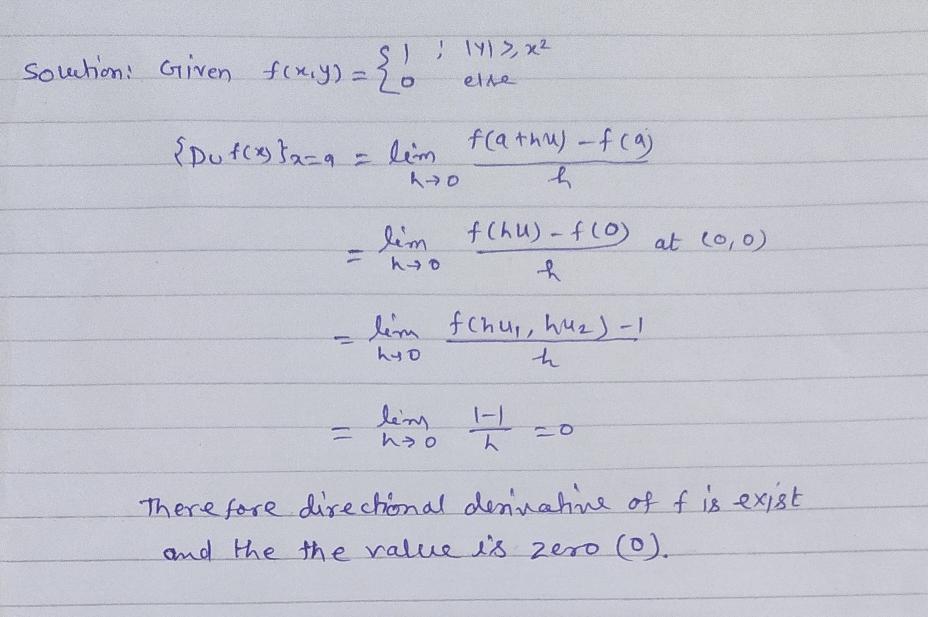 Solution: Given f(x,y) = { 1 ; |y| ≥ x²
0 else
{Du f(x)}x=a = lim h→0 f(a+hu) - f(a) / h
= lim h→0 f(hu) - f(0) / h at (0,0)
= lim h→0 f(hu₁, hu₂) - 1 / h
= lim h→0 1-1 / h = 0
Therefore directional derivative of f is exist
and the the value is zero (0).